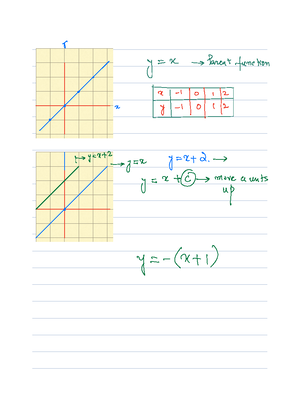 y = x → Parent function
x
x -1 0 1 2
y -1 0 1 2
→ y=x+2
→ y=x
y=x+2 →
y = x + c → move c units
up
y = -(x+1)